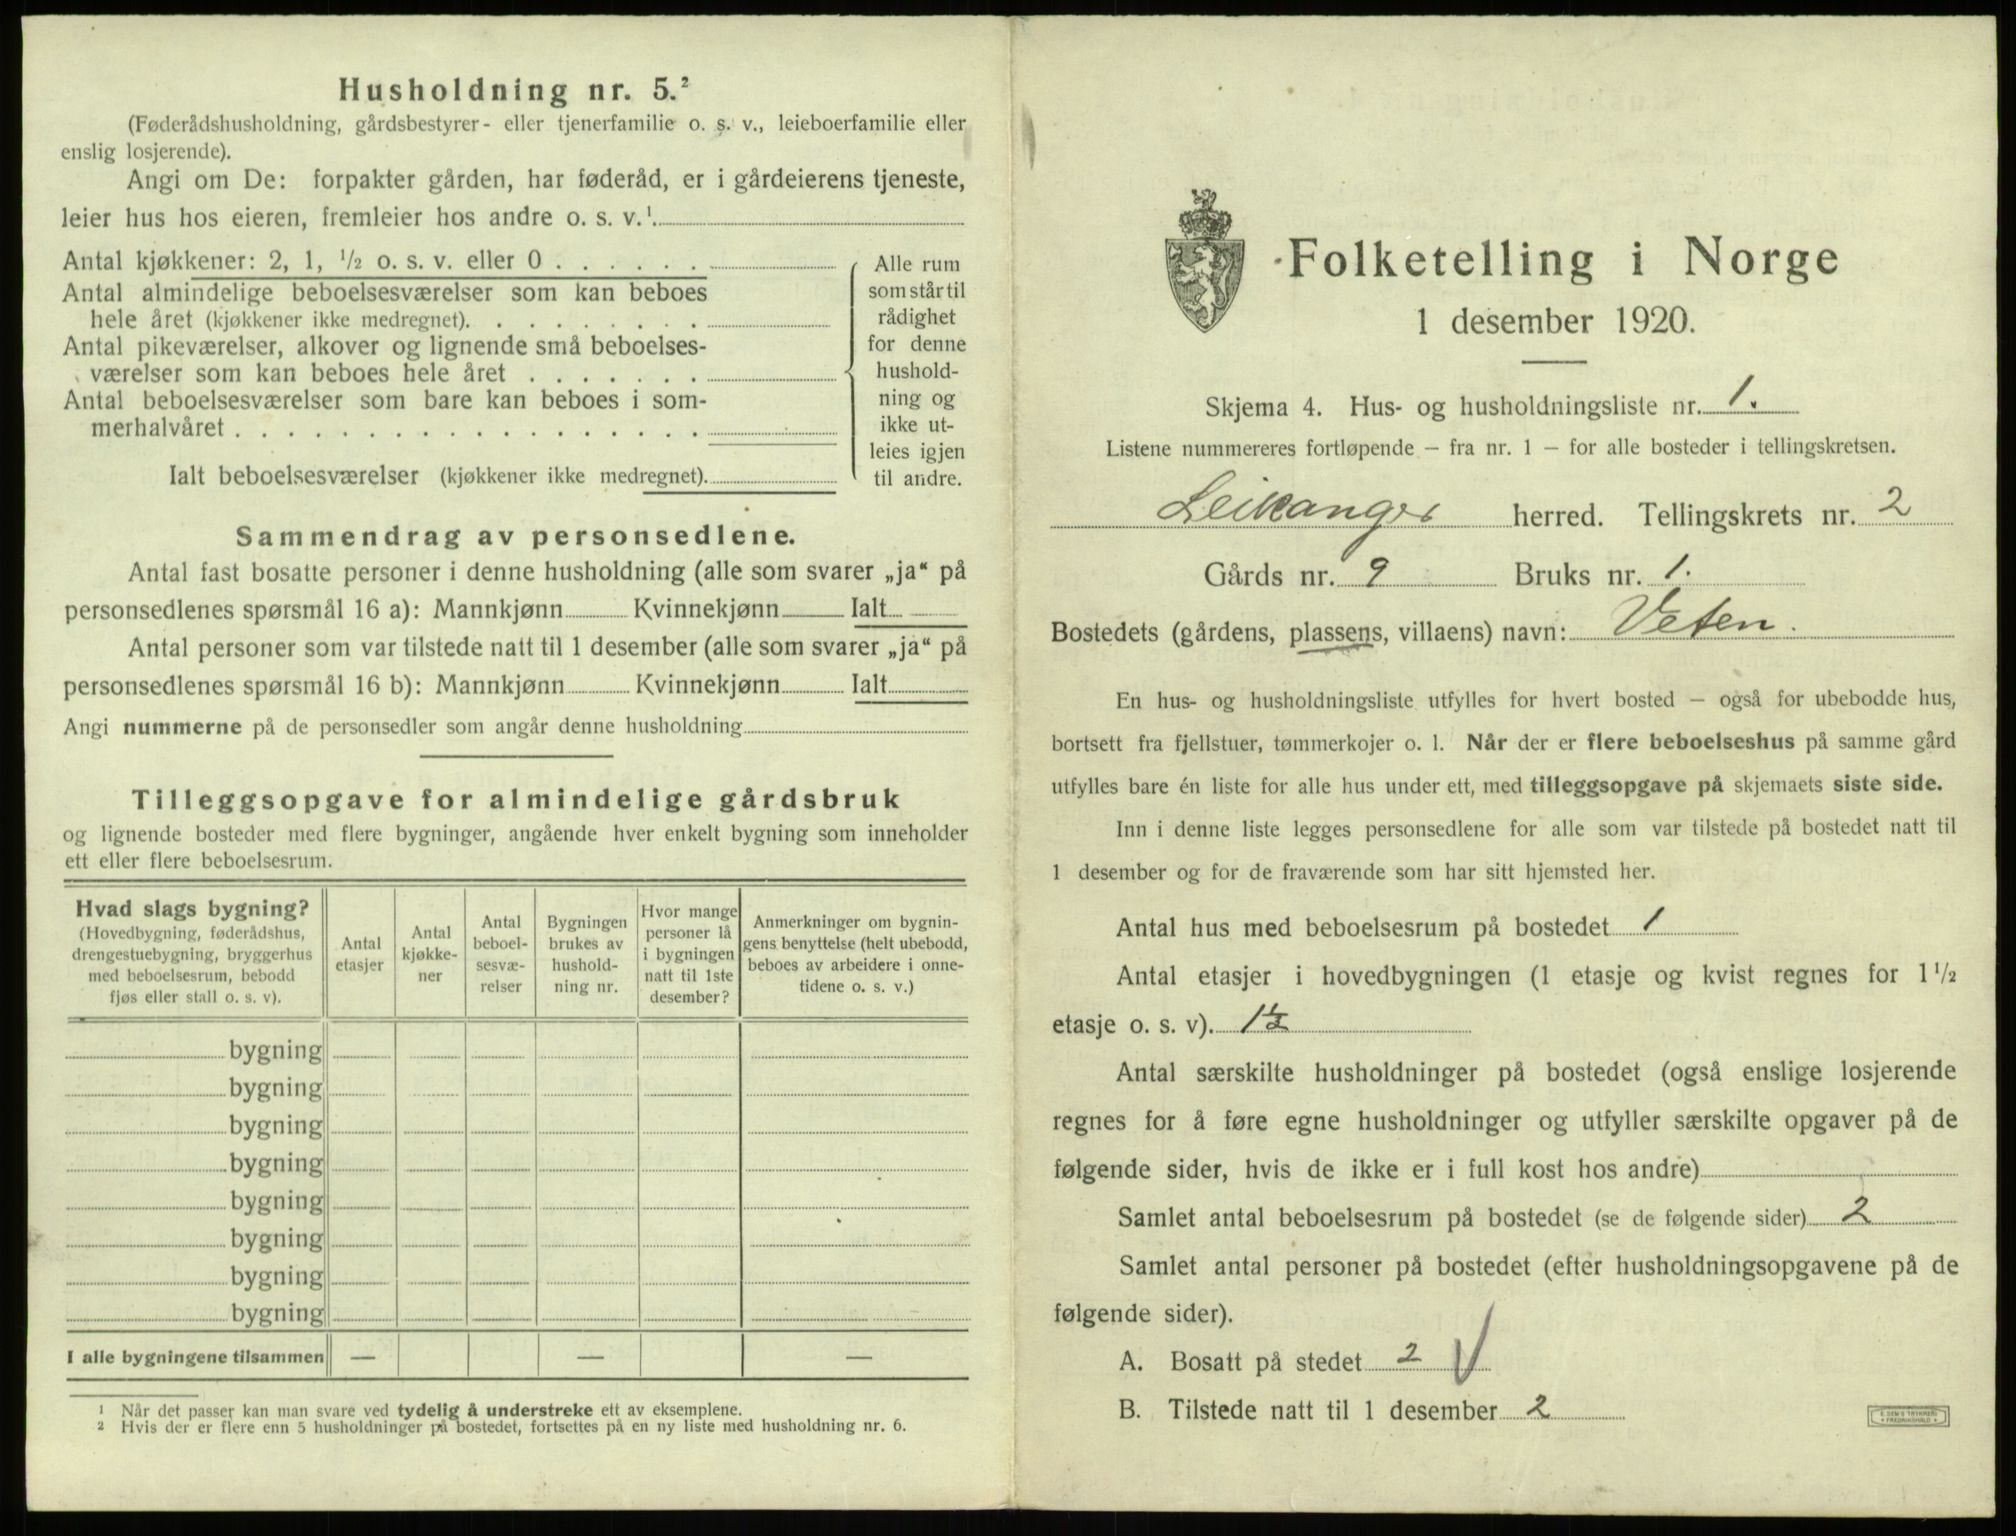 Husholdning nr. 5.²
(Føderådshusholdning, gårdsbestyrer- eller tjenerfamilie o. s. v., leieboerfamilie eller
enslig losjerende).
Angi om De: forpakter gården, har føderåd, er i gårdeierens tjeneste,
leier hus hos eieren, fremleier hos andre o. s. v.¹
Antal kjøkkener: 2, 1, ½ o. s. v. eller 0 . . . . . .
Antal almindelige beboelsesværelser som kan beboes
hele året (kjøkkener ikke medregnet). . . . . . . . .
Antal pikeværelser, alkover og lignende små beboelses-
værelser som kan beboes hele året . . . . . . .
Antal beboelsesværelser som bare kan beboes i som-
merhalvåret . . . . . . . . . . . . . . . . . .
Ialt beboelsesværelser (kjøkkener ikke medregnet).
Alle rum
som står til
rådighet
for denne
hushold-
ning og
ikke ut-
leies igjen
til andre.
Sammendrag av personsedlene.
Antal fast bosatte personer i denne husholdning (alle som svarer „ja“ på
personsedlenes spørsmål 16 a): Mannkjønn Kvinnekjønn Ialt
Antal personer som var tilstede natt til 1 desember (alle som svarer „ja“ på
personsedlenes spørsmål 16 b): Mannkjønn Kvinnekjønn Ialt
Angi nummerne på de personsedler som angår denne husholdning
Tilleggsopgave for almindelige gårdsbruk
og lignende bosteder med flere bygninger, angående hver enkelt bygning som inneholder
ett eller flere beboelsesrum.
Hvad slags bygning?
(Hovedbygning, føderådshus,
drengestuebygning, bryggerhus
med beboelsesrum, bebodd
fjøs eller stall o. s. v).
Antal
etasjer
Antal
kjøkke-
ner
Antal
beboel-
sesvæ-
relser
Bygningen
brukes av
hushold-
ning nr.
Hvor mange
personer lå
i bygningen
natt til 1ste
desember?
Anmerkninger om bygnin-
gens benyttelse (helt ubebodd,
beboes av arbeidere i onne-
tidene o. s. v.)
bygning
bygning
bygning
bygning
bygning
bygning
bygning
bygning
I alle bygningene tilsammen — — —
¹ Når det passer kan man svare ved tydelig å understreke ett av eksemplene.
² Hvis der er flere enn 5 husholdninger på bostedet, fortsettes på en ny liste med husholdning nr. 6.
Folketelling i Norge
1 desember 1920.
Skjema 4. Hus- og husholdningsliste nr. 1.
Listene nummereres fortløpende – fra nr. 1 – for alle bosteder i tellingskretsen.
Leikanger herred. Tellingskrets nr. 2
Gårds nr. 9 Bruks nr. 1.
Bostedets (gårdens, plassens, villaens) navn: Veten.
En hus- og husholdningsliste utfylles for hvert bosted – også for ubebodde hus,
bortsett fra fjellstuer, tømmerkojer o. l. Når der er flere beboelseshus på samme gård
utfylles bare én liste for alle hus under ett, med tilleggsopgave på skjemaets siste side.
Inn i denne liste legges personsedlene for alle som var tilstede på bostedet natt til
1 desember og for de fraværende som har sitt hjemsted her.
Antal hus med beboelsesrum på bostedet 1
Antal etasjer i hovedbygningen (1 etasje og kvist regnes for 1 ½
etasje o. s. v). 1½
Antal særskilte husholdninger på bostedet (også enslige losjerende
regnes for å føre egne husholdninger og utfyller særskilte opgaver på de
følgende sider, hvis de ikke er i full kost hos andre)
Samlet antal beboelsesrum på bostedet (se de følgende sider) 2
Samlet antal personer på bostedet (efter husholdningsopgavene på de
følgende sider).
A. Bosatt på stedet 2 V
B. Tilstede natt til 1 desember 2
E. SEM'S TRYKKERI
FREDRIKSHALD